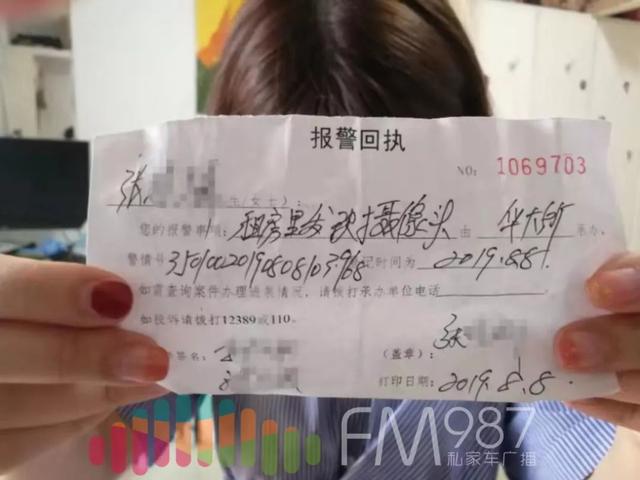 报警回执
NO: 1069703
张 生/女士):
您的报警事项: 租房里发现摄像头 由 华大所 承办,
警情号 记时间为 2019.8.8
如需查询案件办理进展情况, 请拨打承办单位电话
如投诉请拨打12389或110。
签名: (盖章):
打印日期: 2019.8.8.
FM987
私家车广播